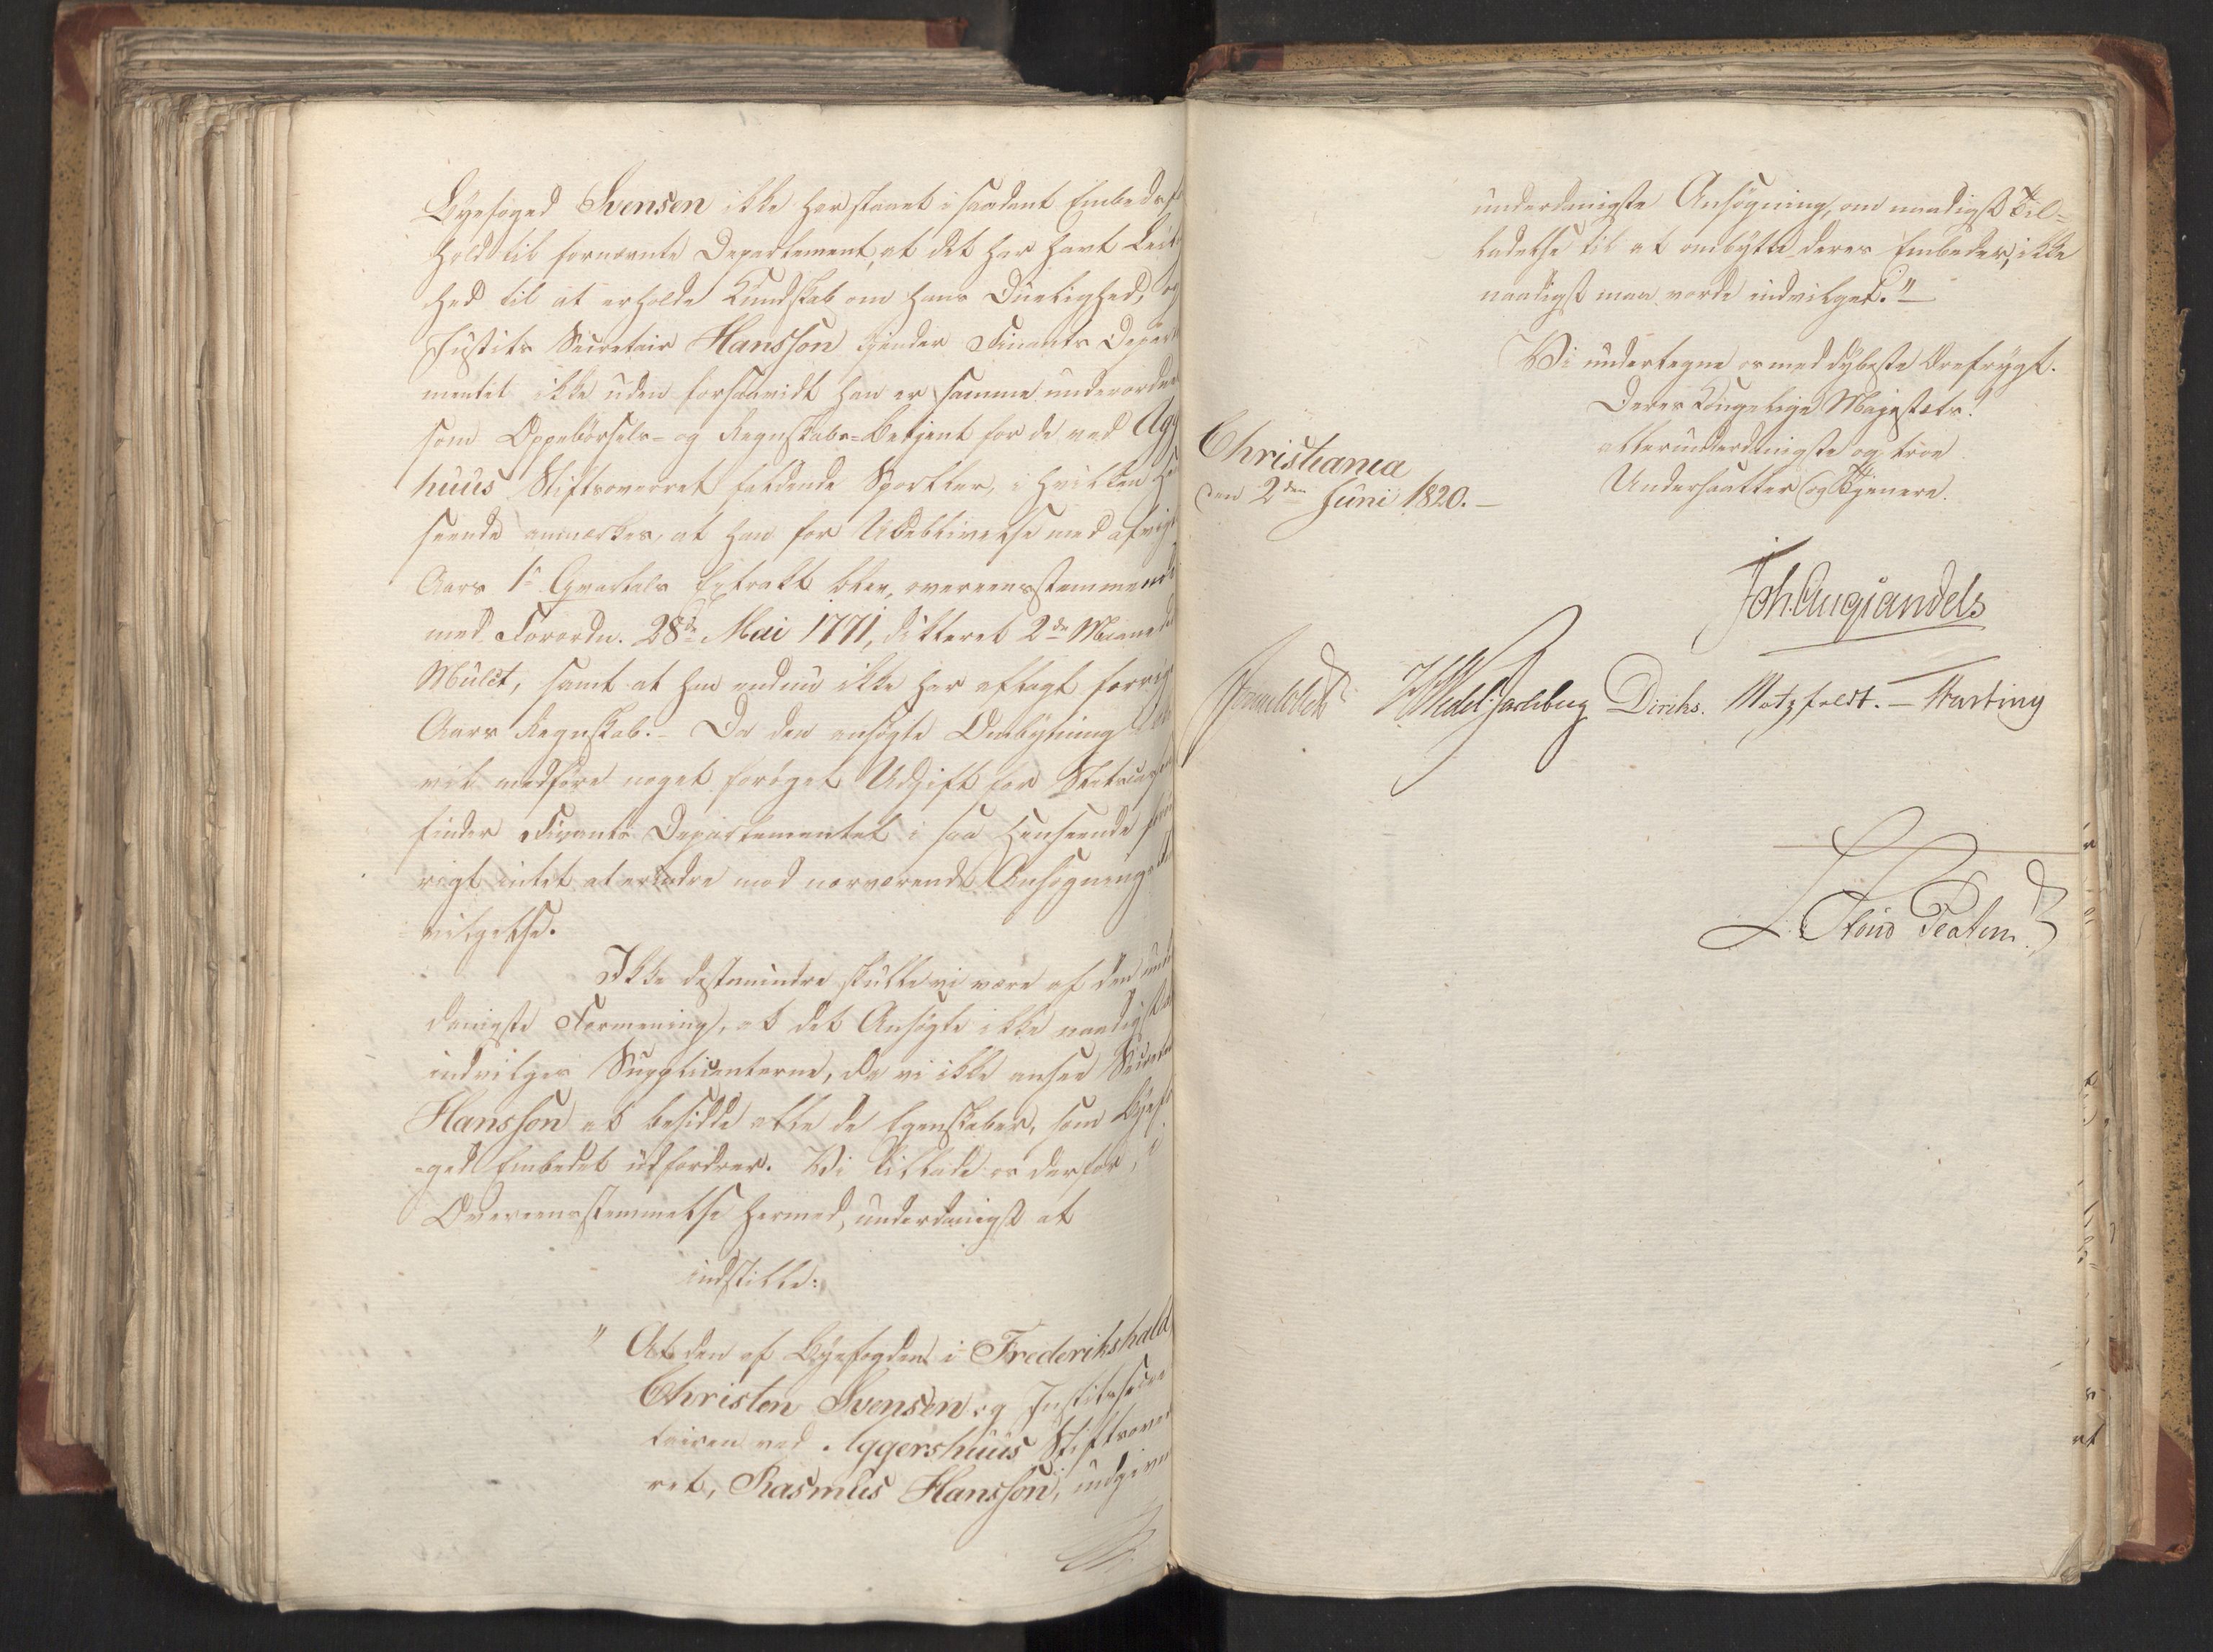 Byefoged Svensen ikke har staaet i saadant Embedsfor
hold til fornævnte Departement, at det har havt Leilig
hed til at erholde Kundskab om hans Duelighed, og
Justits Secretair Hansson kjender Finants Departe
mentet ikke uden forsaavidt han er samme underordnet
som Oppebörsels- og Regnskabs-Betjent for de ved Agg
huus Stiftsoverret faldende Sportler, i hvilken Hen
seende anmærkes, at han for Udeblivelse med afvigte
Aars 1ste Qvartals Extrakt blev, overeensstemmende
med Forordn. 28de Mai 1771, dikteret 2de Maaneders
Mulct, samt at han endnu ikke har aflagt forrige
Aars Regnskab. – Da den ansögte Ombytning ikke
vil medföre noget foröget Udgift for Statscassen
finder Finants Departementet i saa Henseende for
rigt intet at erindre mod nærværende Ansögnings
vilgelse.
Ikke destomindre skulle vi være af den under
danigste Formening, at det Ansögte ikke naadigst
indvilges Supplicanterne, da vi ikke ansee Secretair
Hansson at besidde alle de Egenskaber, som Byefo
ged Embedet udfordrer. Vi tillade os derfor, i
Overeensstemmelse hermed, underdanigst at
indstille:
" At den af Byefogden i Frederikshald
Christen Svensen og Justitssecre
tairen ved Aggershuus Stiftsover
ret, Rasmus Hansson, indgivne
underdanigste Ansögning, om naadigst Til-
ladelse til at ombytte deres Embeder, ikke
naadigst maa vorde indvilget."
Vi undertegne os med dybeste Ærefrygt.
Deres Kongelige Majestæts!
allerunderdanigste og troe
Undersaatter og Tjenere.
Christiania
den 2den Juni 1820. –
Joh. Aug. Sandels
Sommerhielm HWedel Jarlsberg Diriks. Motzfeldt. – Fasting